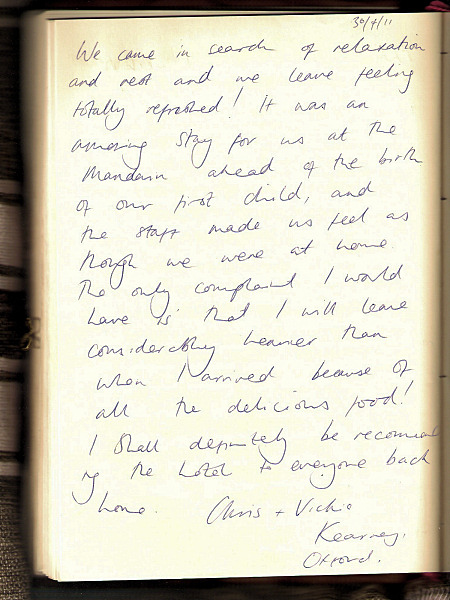 30/4/11
We came in search of relaxation
and rest and we leave feeling
totally refreshed! It was an
amazing stay for us at the
Mandarin ahead of the birth
of our first child, and
the staff made us feel as
though we were at home.
The only complaint I would
have is that I will leave
considerably heavier than
when I arrived because of
all the delicious food!
I shall definitely be recommend
ng the hotel to everyone back
home. Chris + Vicki
Kearney.
Oxford.